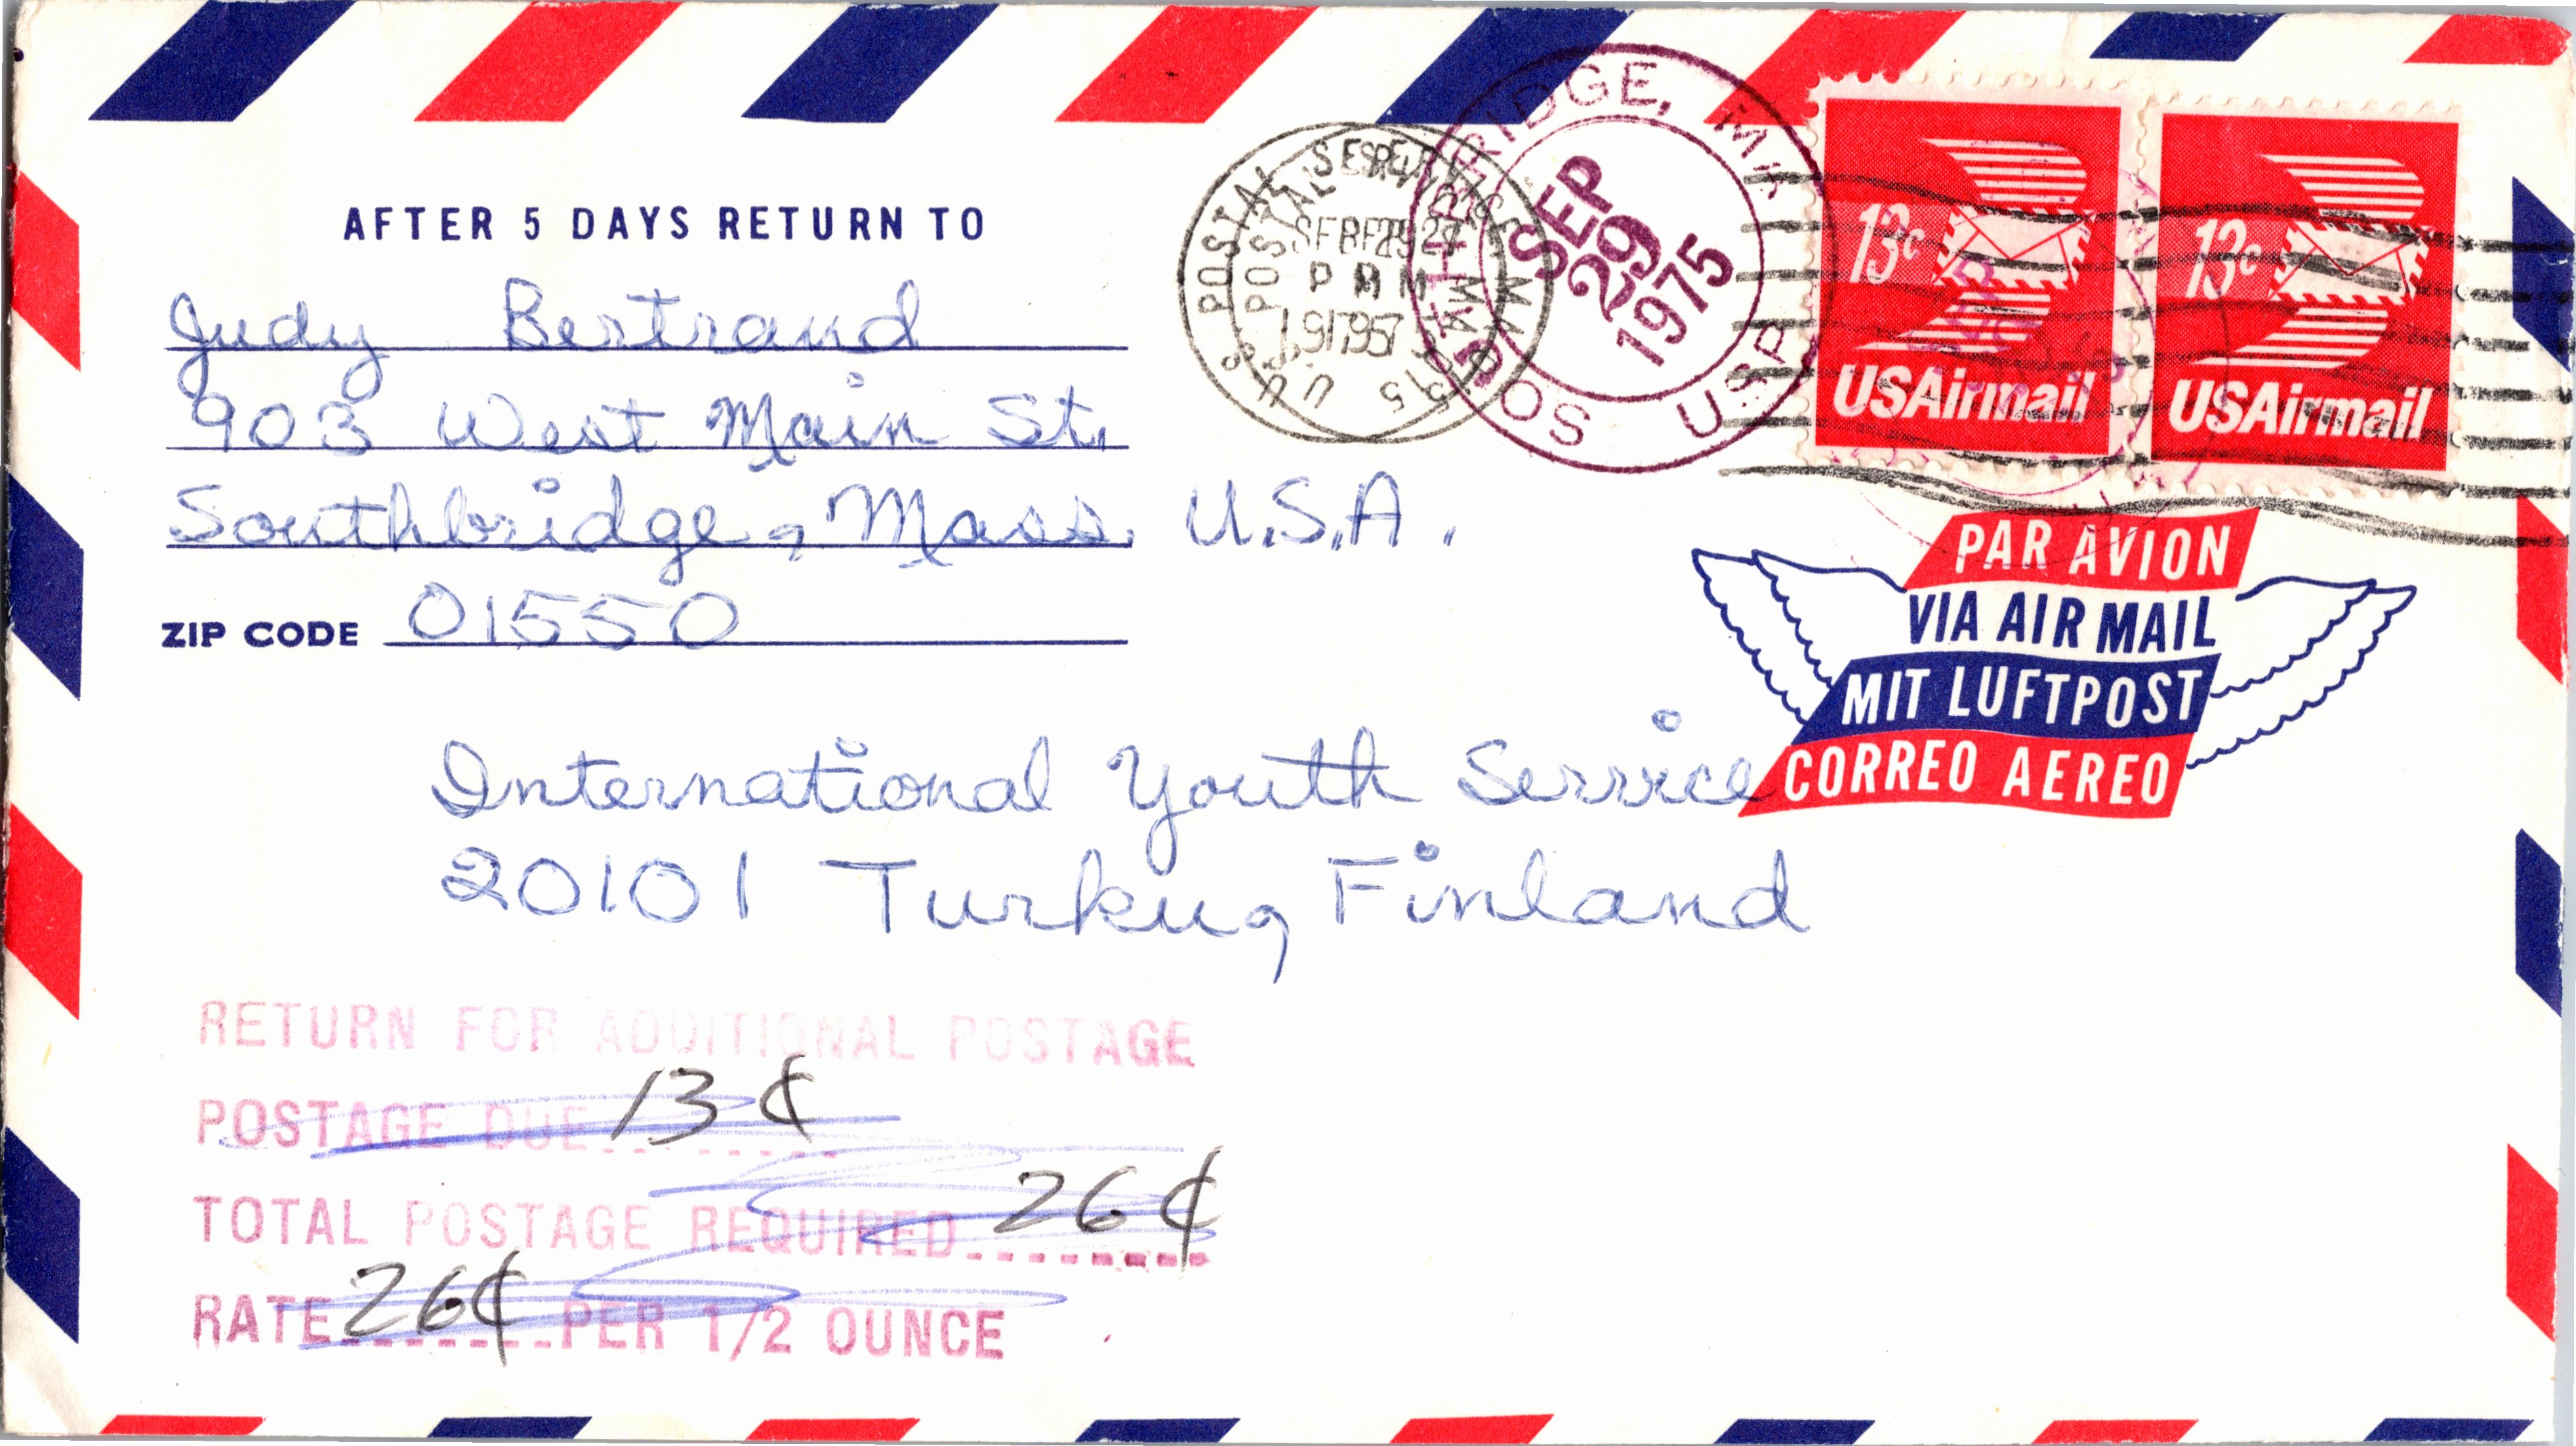 AFTER 5 DAYS RETURN TO
Judy Bertrand
903 West Main St.
Southbridge, Mass. U.S.A.
ZIP CODE 01550
U.S. POSTAL
SEP
29
1975
USPO
13c
USAirmail
13c
USAirmail
PAR AVION
VIA AIR MAIL
MIT LUFTPOST
CORREO AEREO
International Youth Service
20101 Turku, Finland
RETURN FOR ADDITIONAL POSTAGE
POSTAGE DUE 13¢
TOTAL POSTAGE REQUIRED 26¢
RATE 26¢ PER 1/2 OUNCE